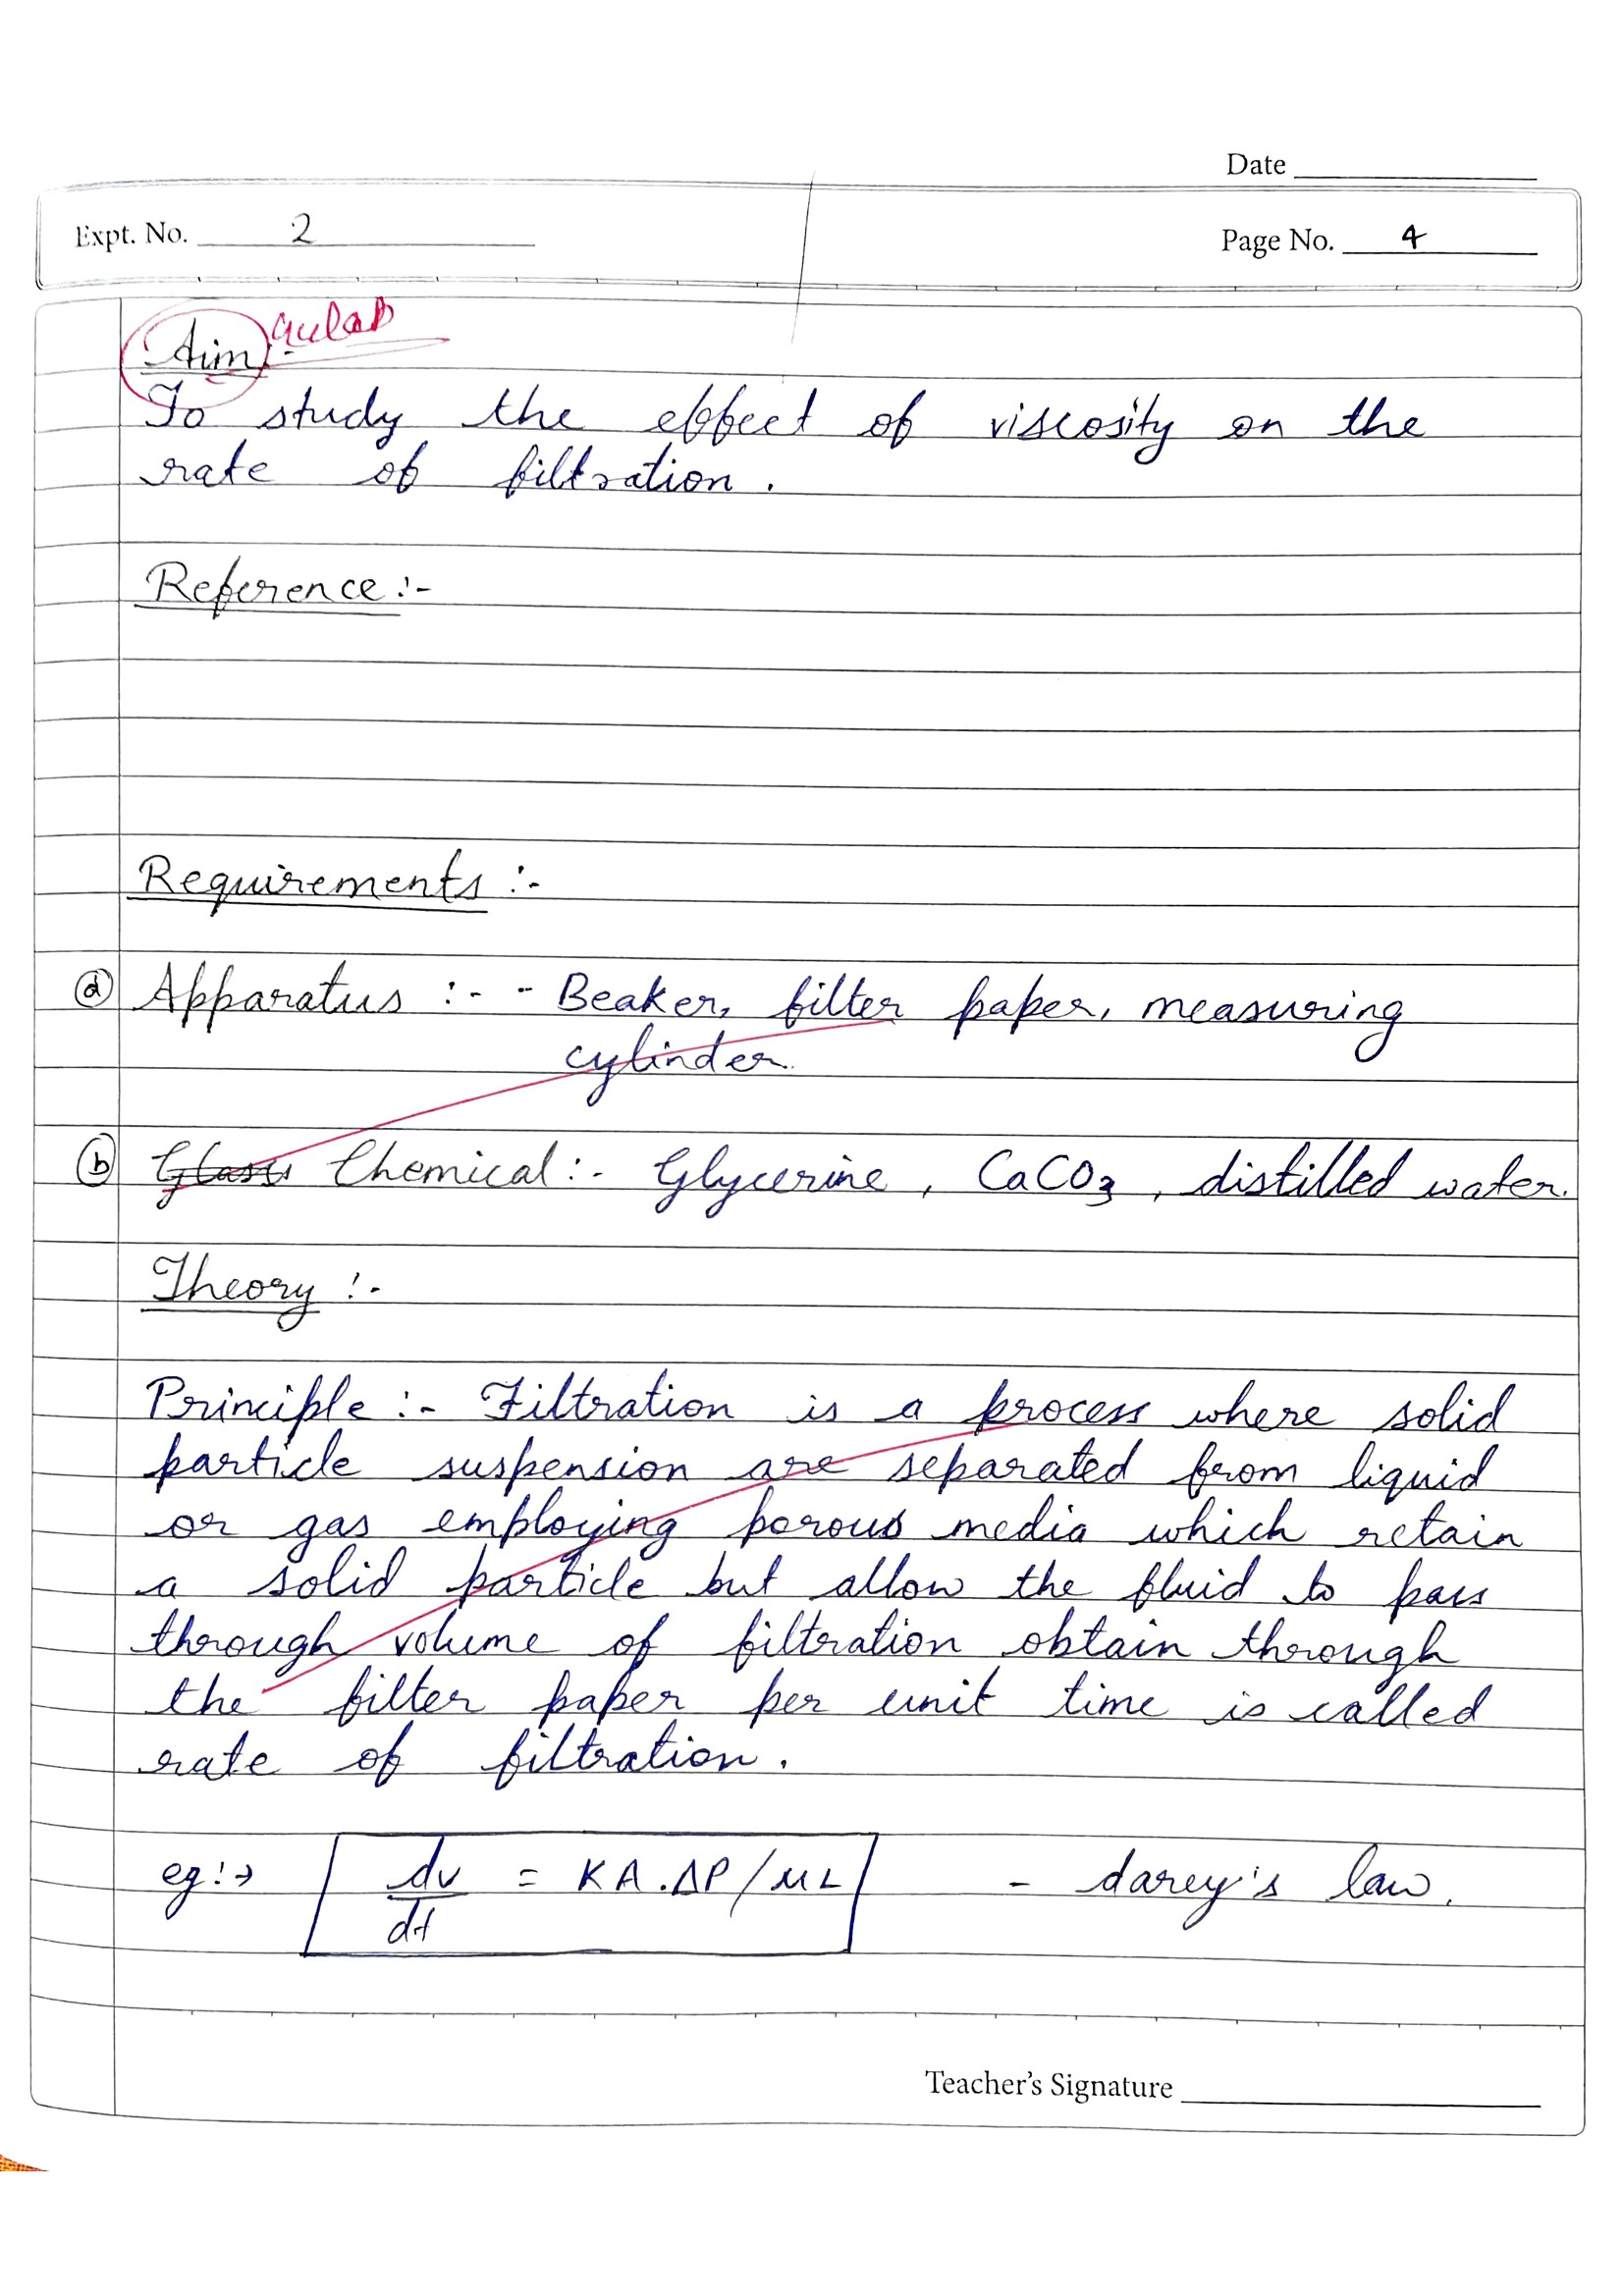 Date
Expt. No. 2
Page No. 4
Aim :-
To study the effect of viscosity on the
rate of filtration.
Reference :-
Requirements :-
(a) Apparatus :- - Beaker, filter paper, measuring
cylinder.
(b) Glass Chemical :- Glycerine, CaCO3, distilled water.
Theory :-
Principle :- Filtration is a process where solid
particle suspension are separated from liquid
or gas employing porous media which retain
a solid particle but allow the fluid to pass
through volume of filtration obtain through
the filter paper per unit time is called
rate of filtration.
eg :→ dv/dt = KA.ΔP/μL - darcy's law.
Teacher's Signature